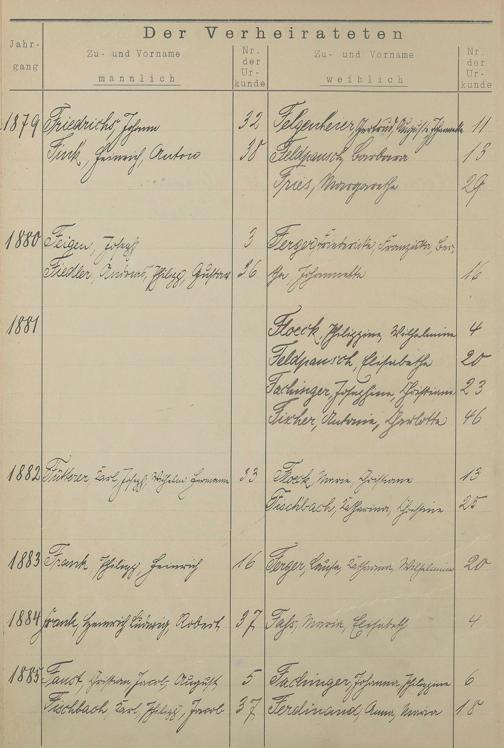 Der Verheirateten
Jahr-
gang
Zu- und Vorname
männlich
Nr.
der
Ur-
kunde
Zu- und Vorname
weiblich
Nr.
der
Ur-
kunde
1879 Friedrichs, Johann 32 Felgenheuer, Gertrud, Auguste, 11
Fink, Heinrich, Anton 38 Feldpausch, Barbara 13
Fries, Margarethe 29
1880 Feigen, Joseph 3 Ferger, Friedericke, Franziska, Ber-
Fiedler, Andreas, Philipp, Gustav 26 tha, Johannetta 16
1881 Floeck, Philippine, Wilhelmine 4
Feldpausch, Elisabetha 20
Fachinger, Josephine, Christiane 23
Fischer, Antonie, Charlotte 46
1882 Fütterer, Karl, Joseph, Wilhelm, Hermann 33 Flock, Maria, Christiane 13
Fischbach, Katharina, Christine 25
1883 Frank, Philipp, Heinrich 16 Ferger, Luise, Katharina, Wilhelmine 20
1884 Frank, Heinrich, Ludwig, Robert 37 Fass, Maria, Elisabeth 4
1885 Faust, Christian, Jacob, August 5 Fachinger, Johanna, Philippine 6
Fischbach, Karl, Philipp, Jacob 37 Ferdinand, Anna, Maria 18